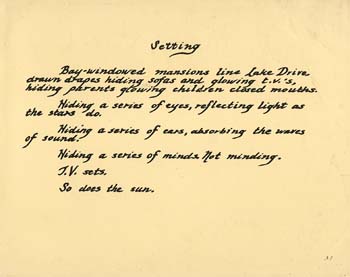 Setting
Bay-windowed mansions line Lake Drive
drawn drapes hiding sofas and glowing t.v.'s,
hiding parents glowing children closed mouths.
Hiding a series of eyes, reflecting light as
the stars do.
Hiding a series of ears, absorbing the waves
of sound.
Hiding a series of minds. Not minding.
T.V. sets.
So does the sun.
31